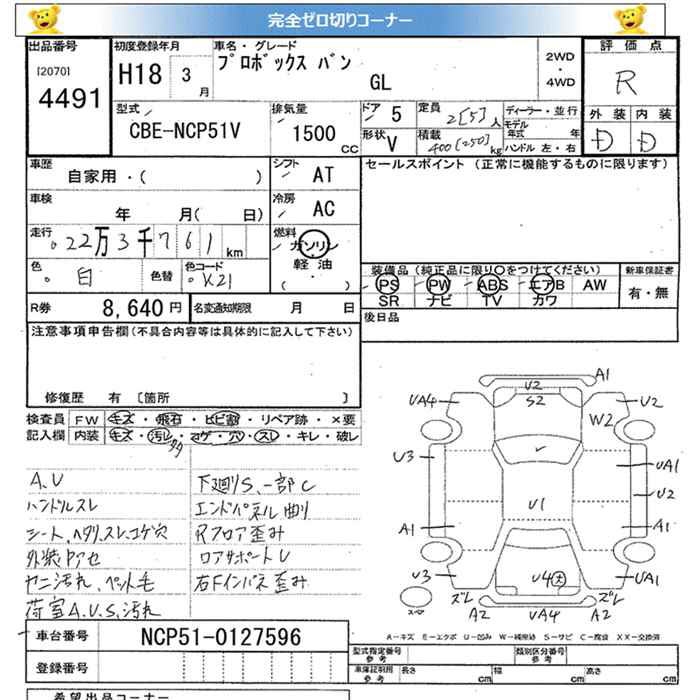 完全ゼロ切りコーナー
出品番号
[2070]
4491
初度登録年月
H18 3 月
車名・グレード
プロボックス バン
GL
2WD
・
4WD
評価点
R
外装 内装
D D
型式
CBE-NCP51V
排気量
1500 cc
ドア 5
形状 V
定員 2[5]人
積載 400[250]kg
ディーラー・並行
モデル年式 年
ハンドル 左・右
車歴
自家用・( )
車検
年 月( 日)
走行
22万3千761km
色 白 色替 色コード K21
シフト AT
冷房 AC
燃料
ガソリン
軽油
( ・ )
セールスポイント (正常に機能するものに限ります)
装備品(純正品に限り○をつけてください)
PS PW ABS エアB AW
SR ナビ TV カワ
新車保証書
有・無
R券 8,640円
名変通知期限 月 日
後日品
注意事項申告欄(不具合内容等は具体的に記入して下さい)
修復歴 有 [箇所 ]
検査員記入欄
FW キズ・飛石・ヒビ割・リペア跡・×要
内装 キズ・汚レ・コゲ・穴・スレ・キレ・破レ
A、U
ハンドルスレ
シート、ヘタリ、スレ、コゲ穴
外装色アセ
ヤニ汚れ、ペット毛
荷室A、U、S、汚れ
下廻りS、一部C
エンドパネル曲り
Rフロア歪み
ロアサポートU
右Fインパネ歪み
A1
U2
S2
UA4
U2
W2
U3
UA1
U2
U1
A1
A1
U3
U4
UA1
スペア
ズレ
A2
UA4
ズレ
A2
A－キズ E－エクボ U－凹み W－補修跡 S－サビ C－腐食 XX－交換済
車台番号 NCP51-0127596
登録番号
型式指定番号
参考
類別区分番号
参考
車庫証明用
参考
長さ cm 幅 cm 高さ cm
希望出品コーナー